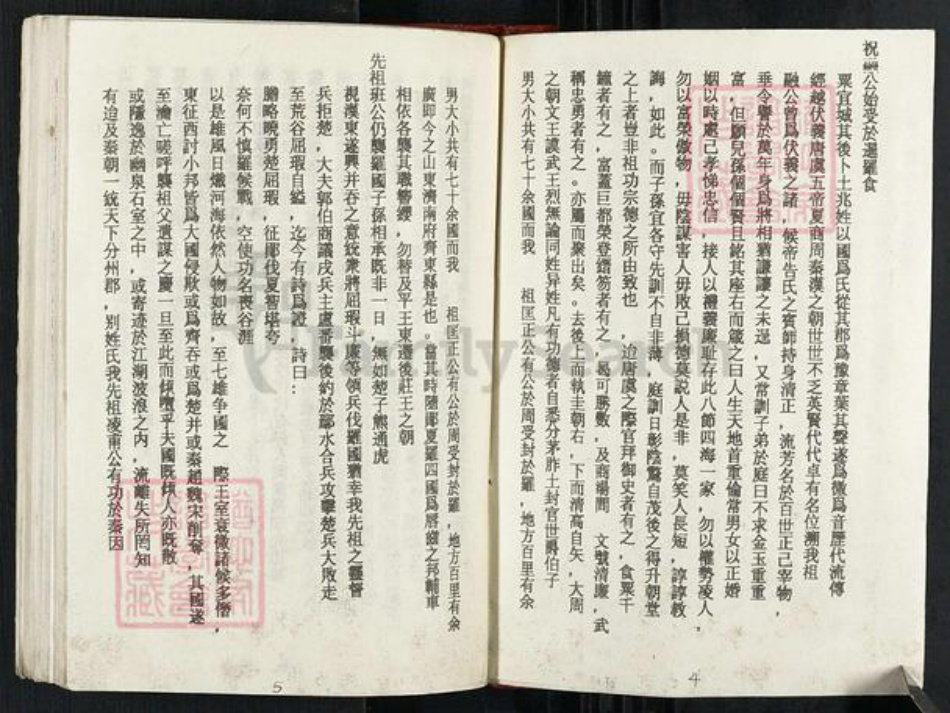 祝融公始受於暹羅食
粟宜城其後卜土兆姓以國爲氏從其郡爲豫章葉其聲遂爲徵爲音歷代流傳
經越伏羲唐虞五帝夏商周秦漢之朝世世不乏英賢代代卓有名位溯我祖
融公曾爲伏羲之諸，候帝告氏之賓師持身清正，流芳名於百世正己宰物，
垂令譽於萬年身爲將相猶謙謙之未逞，又常訓子弟於庭曰不求金玉重重
富，但願兒孫個個賢且銘其座右而箴之曰人生天地首重倫常男女以正婚
姻以時處己孝悌忠信，接人以禮義廉耻存此八節四海一家，勿以權勢凌人，
勿以富榮傲物，毋陰謀害人毋敗己損德莫説人是非，莫笑人長短，諄諄教
誨，如此。而子孫宜各守先訓不自非薄，庭訓日彰陰騭自茂後之得升朝堂
之上者豈非祖功宗德之所由致也　，迨唐虞之際官拜御史者有之，食粟千
鐘者有之，富蓋巨都榮登縉笏者有之，曷可勝數，及商場間　文號清廉，武
稱忠勇者有之。亦屬而聚出矣。去後上而執圭朝右，下而清高自矢，大周
之朝文王謨武王烈無論同姓异姓凡有功德者自悉分茅胙土封官世爵伯子
男大小共有七十余國而我　　祖匡正公有公於周受封於羅，地方百里有余
男大小共有七十余國而我　　祖匡正公有公於周受封於羅，地方百里有余
廣即今之山東濟南府齊東縣是也。當其時隨鄖夏羅四國爲唇齒之邦輔車
相依各襲其職簪纓，勿替及平王東遷後莊王之朝
先祖班公仍襲羅國子孫相承既非一日，無如楚子熊通虎
視漢東遂興并吞之意統衆將屈瑕斗廉等領兵伐羅國猶幸我先祖之靈督
兵拒楚，大夫郭伯商議戌兵主盧番襲後約於鄢水合兵攻擊楚兵大敗走
至荒谷屈瑕自縊，迄今有詩爲證　詩曰：
膽略曉勇楚屈瑕，征鄖伐夏智堪夸
奈何不慎羅候戰，空使功名喪谷涯
以是雄風日熾河海依然人物如故，至七雄争國之　際王室衰微諸候多僭，
東征西討小邦皆爲大國侵欺或爲齊吞或爲楚并或秦趙魏宋削奪，其國遂
至淪亡嗟呼襲祖父遺謀之慶一旦至此而傾隳乎夫國既傾人亦既散
或隱逸於幽泉石室之中，或寄迹於江湖波浪之内，流離失所罔知
有迨及秦朝一統天下分州郡，别姓氏我先祖凌甫公有功於秦因
4
5
FamilySearch